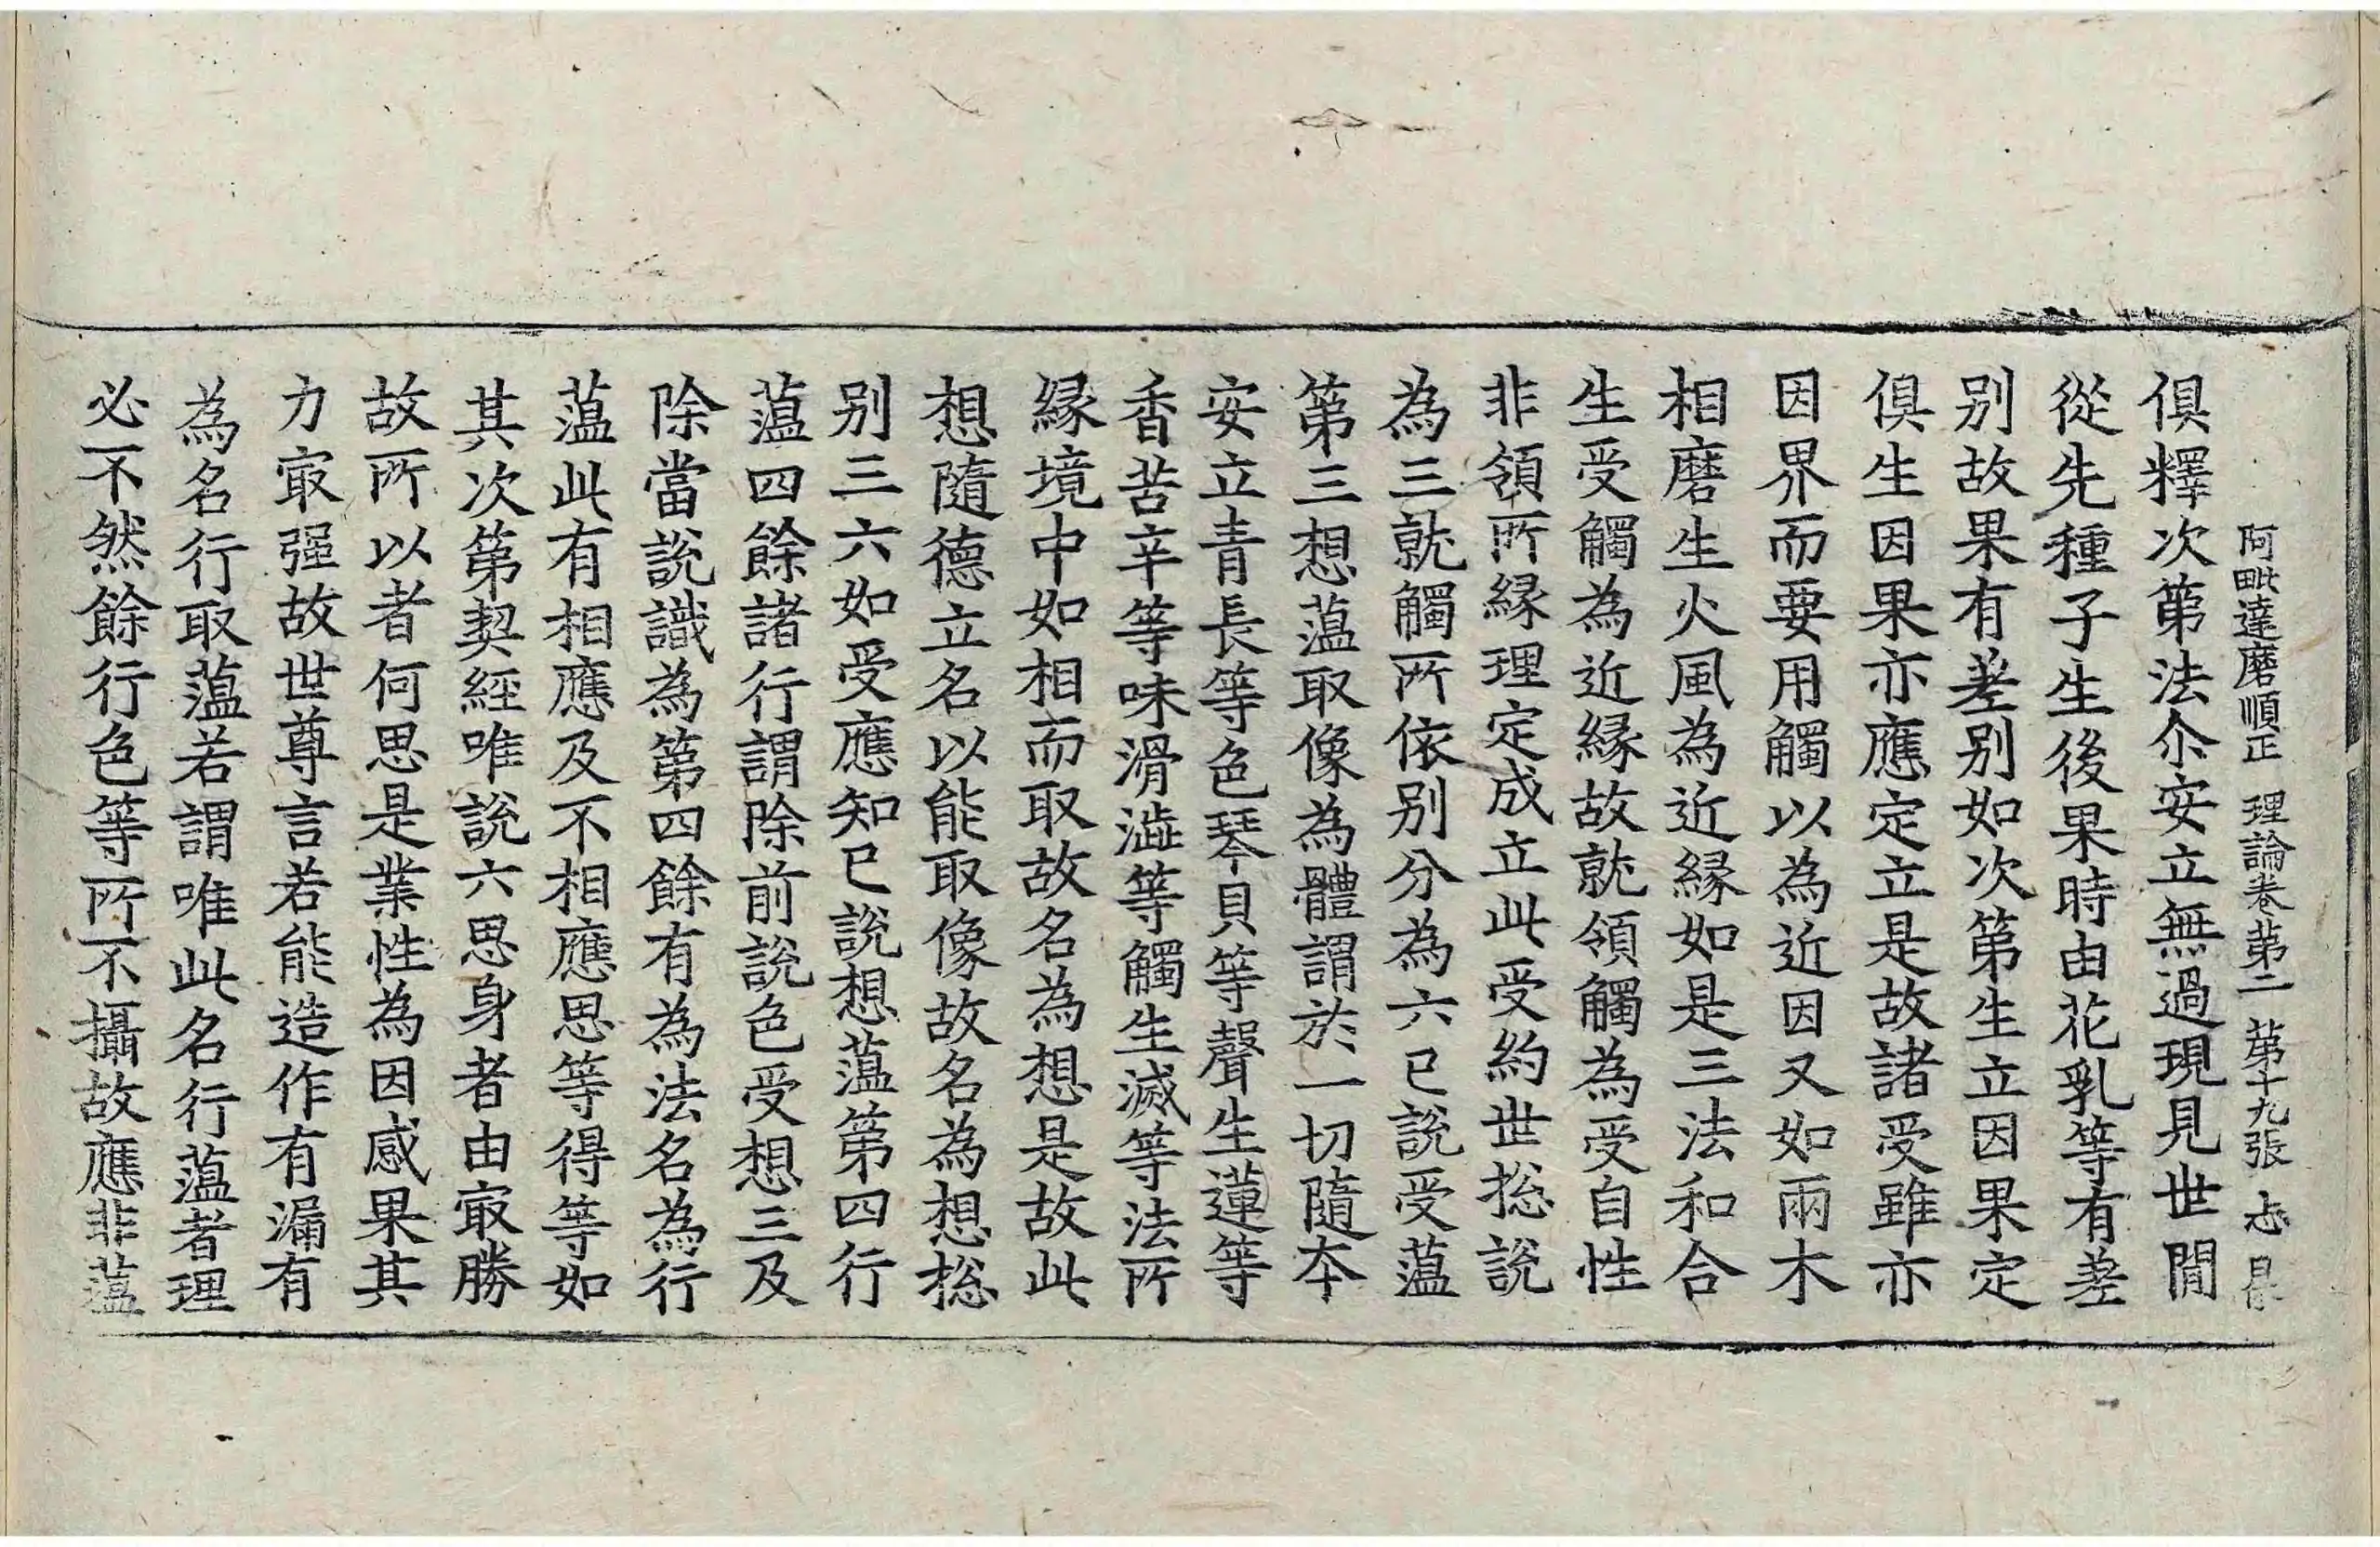 阿毗達磨順正 理論卷第二 第十九張 志
俱釋次第法尒安立無過現見世閒
從先種子生後果時由花乳等有差
别故果有差别如次第生立因果定
俱生因果亦應定立是故諸受雖亦
因界而要用觸以為近因又如兩木
相磨生火風為近緣如是三法和合
生受觸為近緣故就領觸為受自性
非領所緣理定成立此受約世捴說
為三就觸所依别分為六已說受薀
第三想薀取像為體謂於一切隨本
安立青長等色琴貝等聲生蓮等
香苦辛等味滑澁等觸生滅等法所
緣境中如相而取故名為想是故此
想隨德立名以能取像故名為想捴
别三六如受應知已說想薀第四行
薀四餘諸行謂除前說色受想三及
除當說識為第四餘有為法名為行
薀此有相應及不相應思等得等如
其次第契經唯說六思身者由㝡勝
故所以者何思是業性為因感果其
力㝡强故世尊言若能造作有漏有
為名行取薀若謂唯此名行薀者理
必不然餘行色等所不攝故應非薀